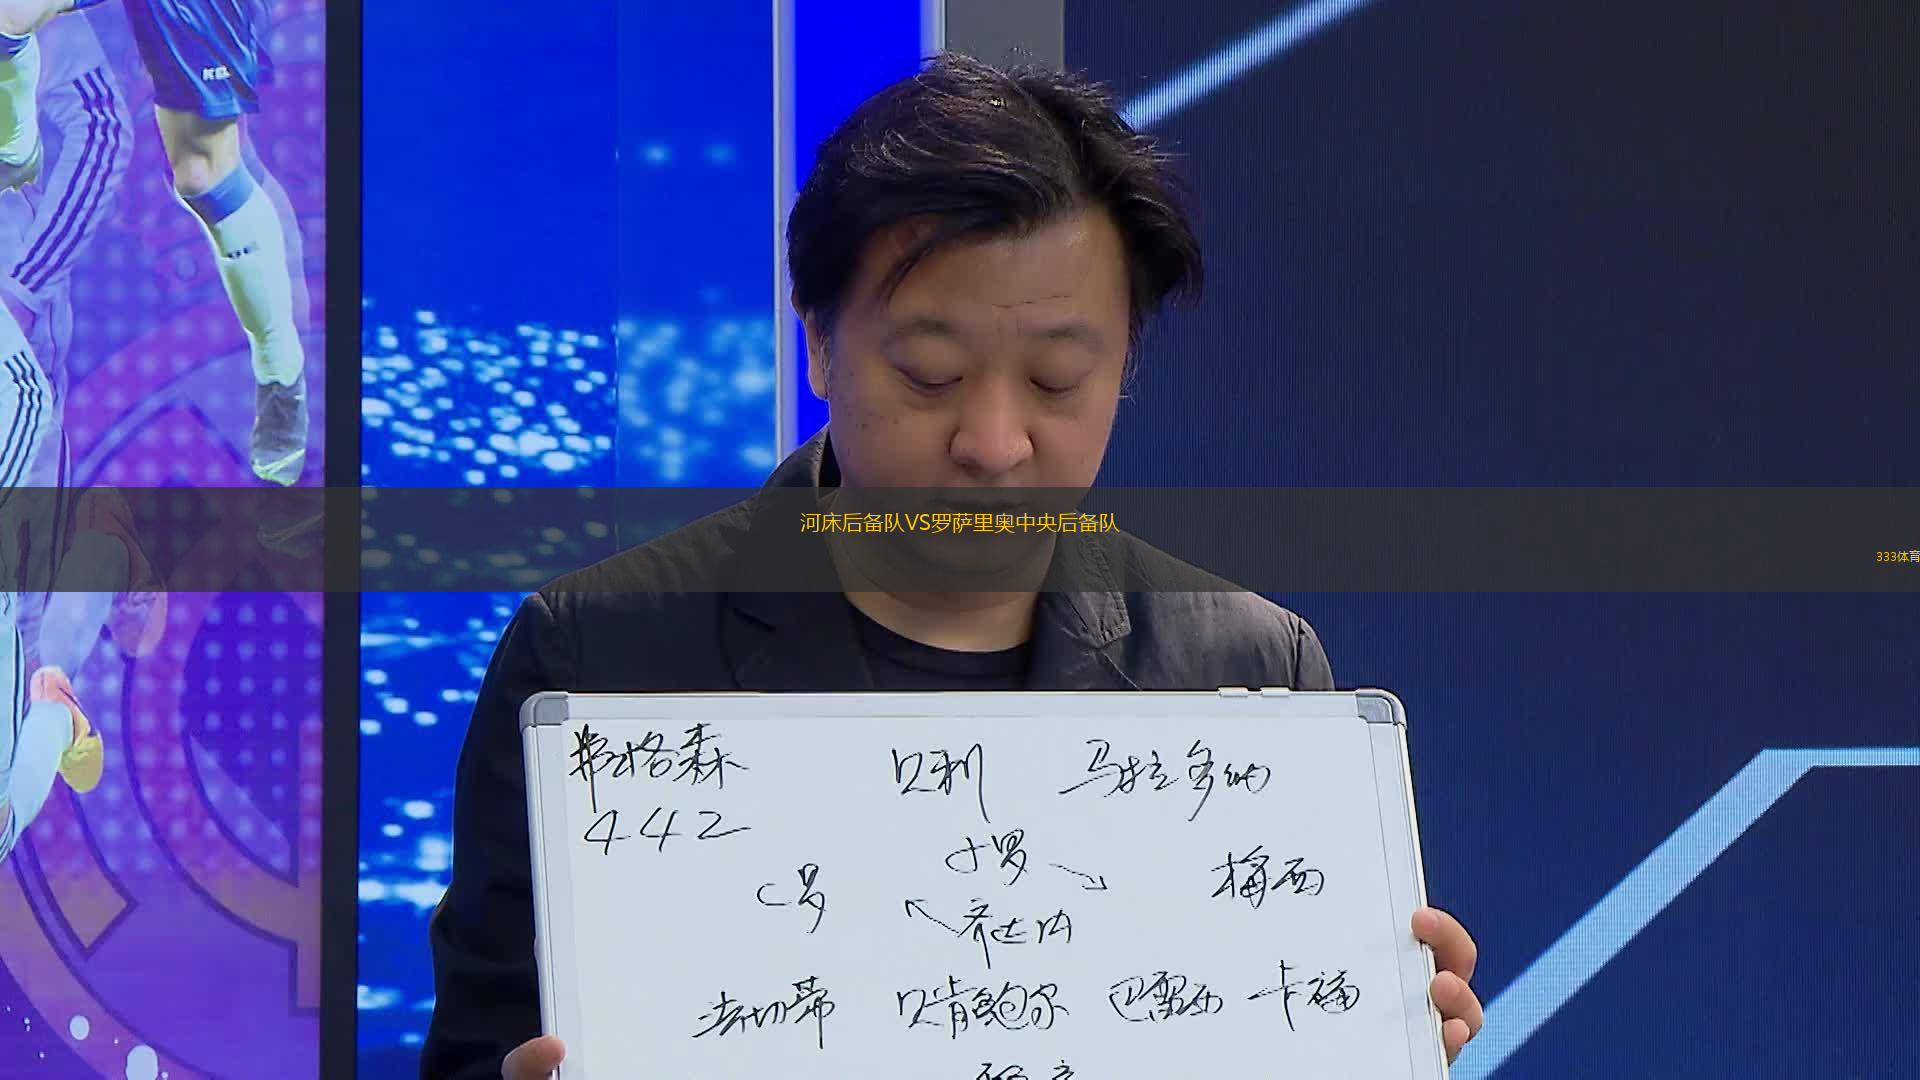 KEL
河床后备队VS罗萨里奥中央后备队
333体育
弗格森 贝利 马拉多纳
442
小罗
C罗 梅西
齐达内
法切蒂 贝肯鲍尔 巴雷西 卡福